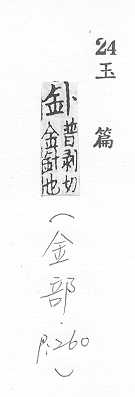 24 玉篇
釙 普剥切 金 也
(金部.p.260)